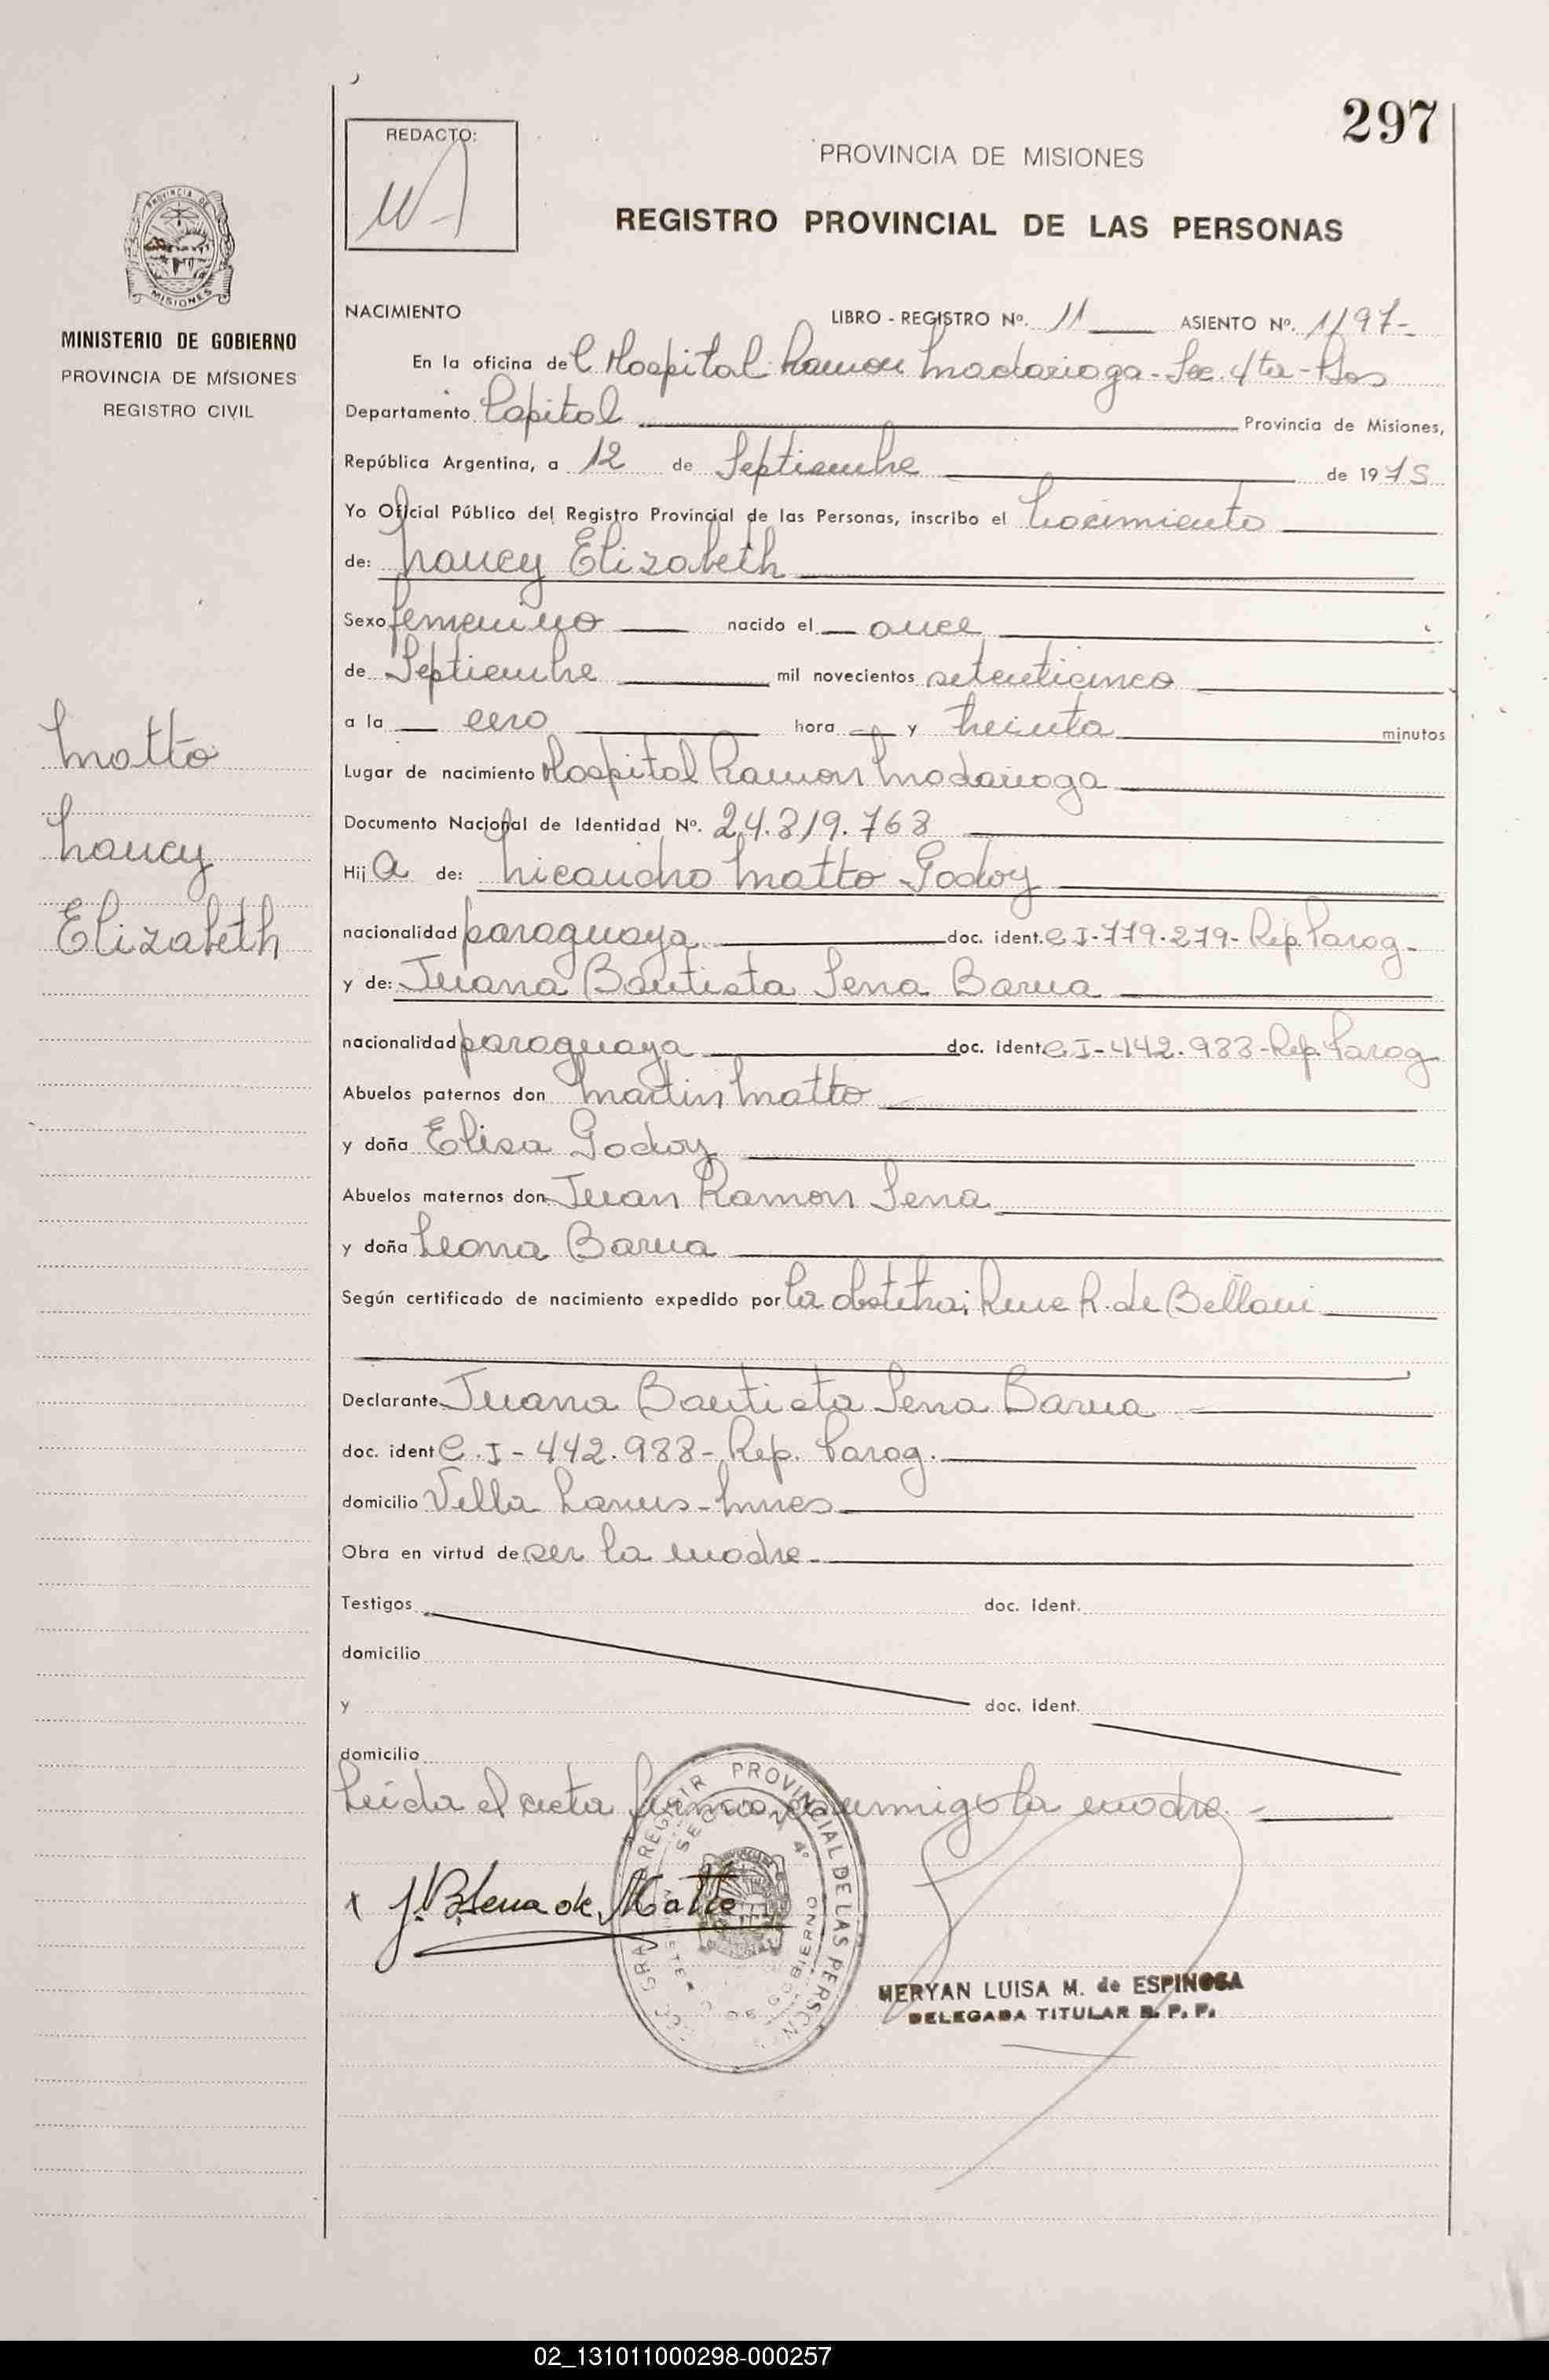 297
REDACTO:
PROVINCIA DE MISIONES
REGISTRO PROVINCIAL DE LAS PERSONAS
PROVINCIA DE
MISIONES
MINISTERIO DE GOBIERNO
PROVINCIA DE MISIONES
REGISTRO CIVIL
NACIMIENTO LIBRO - REGISTRO Nº. 11 ASIENTO Nº. 1197-
En la oficina del Hospital Ramon Madariaga - Sec. 4ta - Pdas
Departamento Capital Provincia de Misiones,
República Argentina, a 12 de Septiembre de 1975
Yo Oficial Público del Registro Provincial de las Personas, inscribo el Nacimiento
de: Nancy Elizabeth
Sexo femenino nacido el once
de Septiembre mil novecientos setenticinco
a la cero hora y treinta minutos
Lugar de nacimiento Hospital Ramon Madariaga
Documento Nacional de Identidad Nº. 24.819.768
Hija de: Nicandro Matto Godoy
nacionalidad paraguaya doc. ident. C I-779.279- Rep. Parag-
y de: Juana Bautista Sena Barua
nacionalidad paraguaya doc. ident. C. I- 442.988-Rep. Parag
Abuelos paternos don Martin Matto
y doña Elisa Godoy
Abuelos maternos don Juan Ramon Sena
y doña Leona Barua
Según certificado de nacimiento expedido por la obstetra; R. de Bellani
Declarante Juana Bautista Sena Barua
doc. ident C. I - 442.988- Rep. Parag.
domicilio Villa Lanus - Mnes
Obra en virtud de ser la madre
Testigos doc. ident.
domicilio
y doc. ident.
domicilio
Leida el acta firma conmigo la madre. -
x J. B. Sena de Matto
REGISTR PROVINCIAL DE LAS PERSON
SECCION 4º
GOBIERNO
MERYAN LUISA M. de ESPINOSA
DELEGADA TITULAR R. P. P.
Matto
Nancy
Elizabeth
02_131011000298-000257